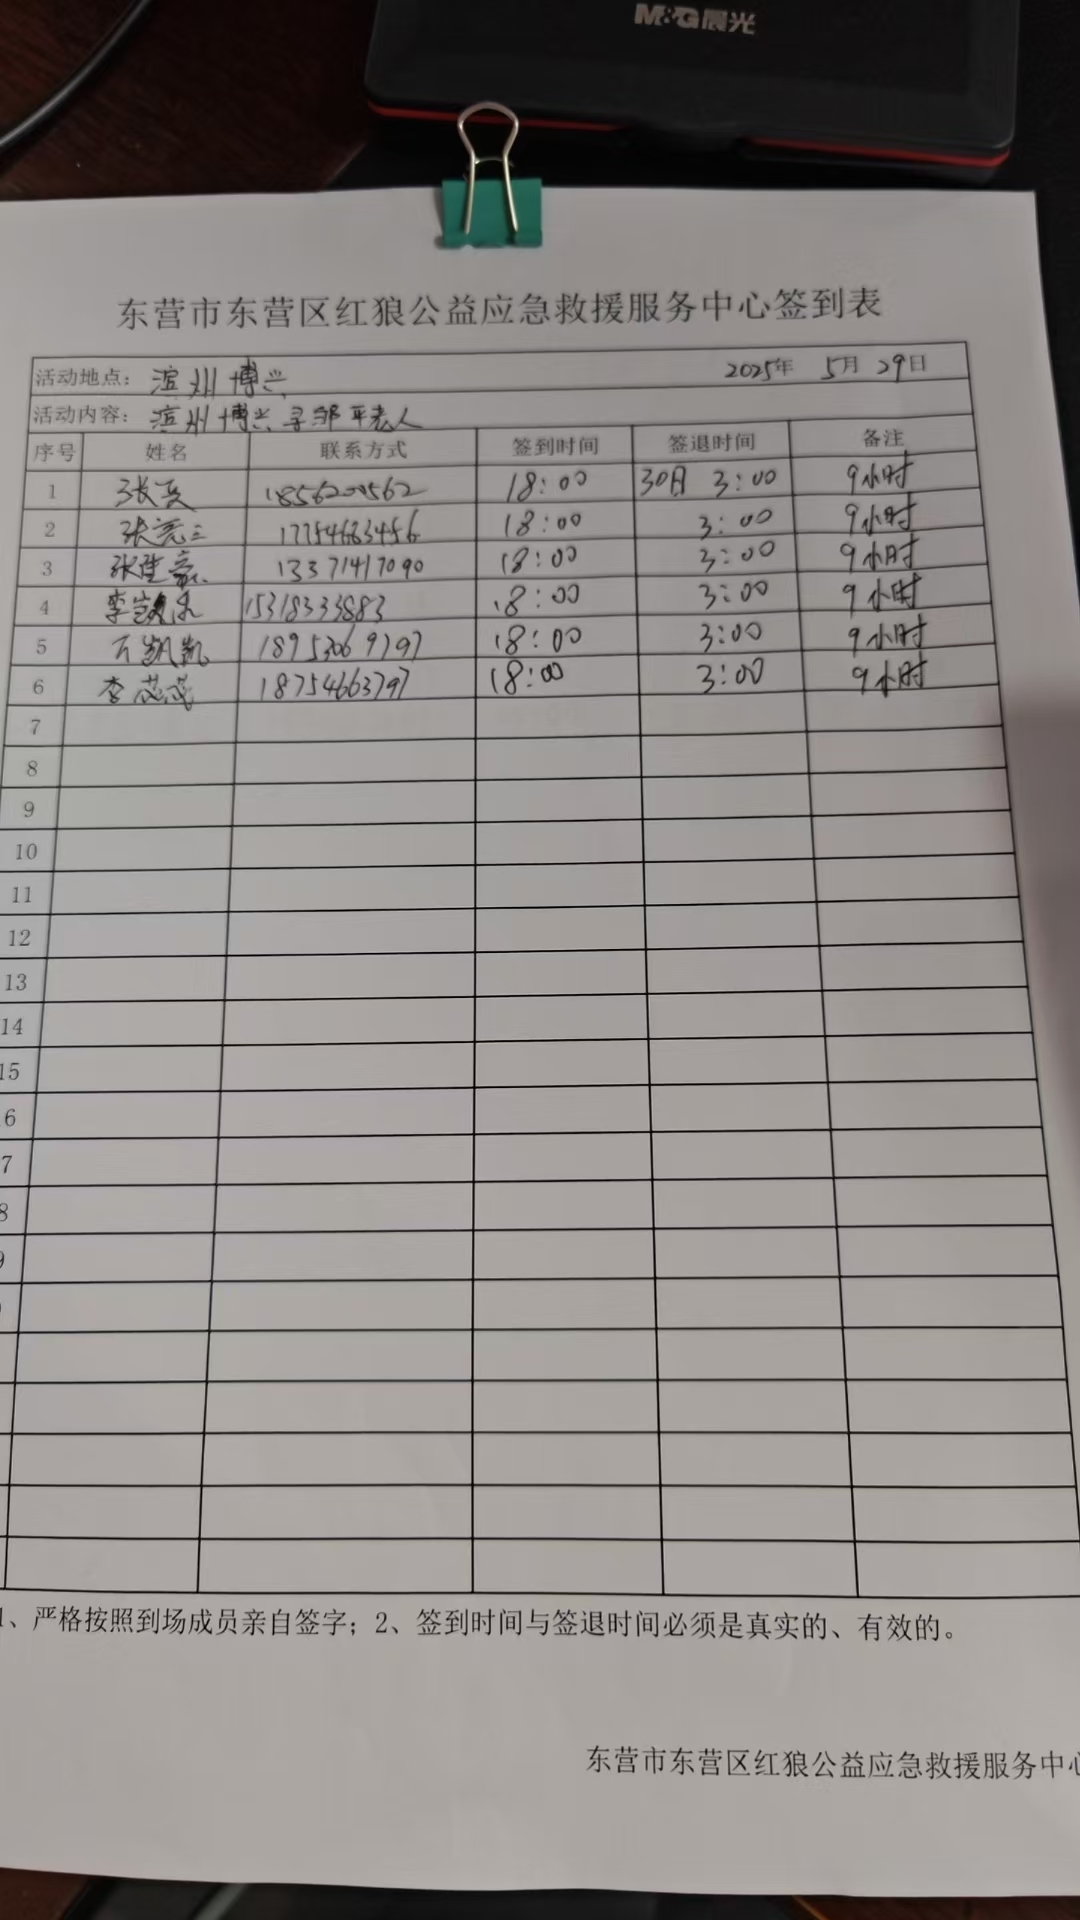 M&G晨光
东营市东营区红狼公益应急救援服务中心签到表
活动地点：滨州博兴 2025年 5月 29日
活动内容：滨州博兴寻邹平老人
序号 姓名 联系方式 签到时间 签退时间 备注
1 张 18:00 30日 3:00 9小时
2 张亮三 17754663456 18:00 3:00 9小时
3 张 13371417090 18:00 3:00 9小时
4 李 15318333883 18:00 3:00 9小时
5 凯凯 18953069797 18:00 3:00 9小时
6 李茂茂 18754663797 18:00 3:00 9小时
7
8
9
10
11
12
13
14
15
6
7
8
9
1、严格按照到场成员亲自签字；2、签到时间与签退时间必须是真实的、有效的。
东营市东营区红狼公益应急救援服务中心